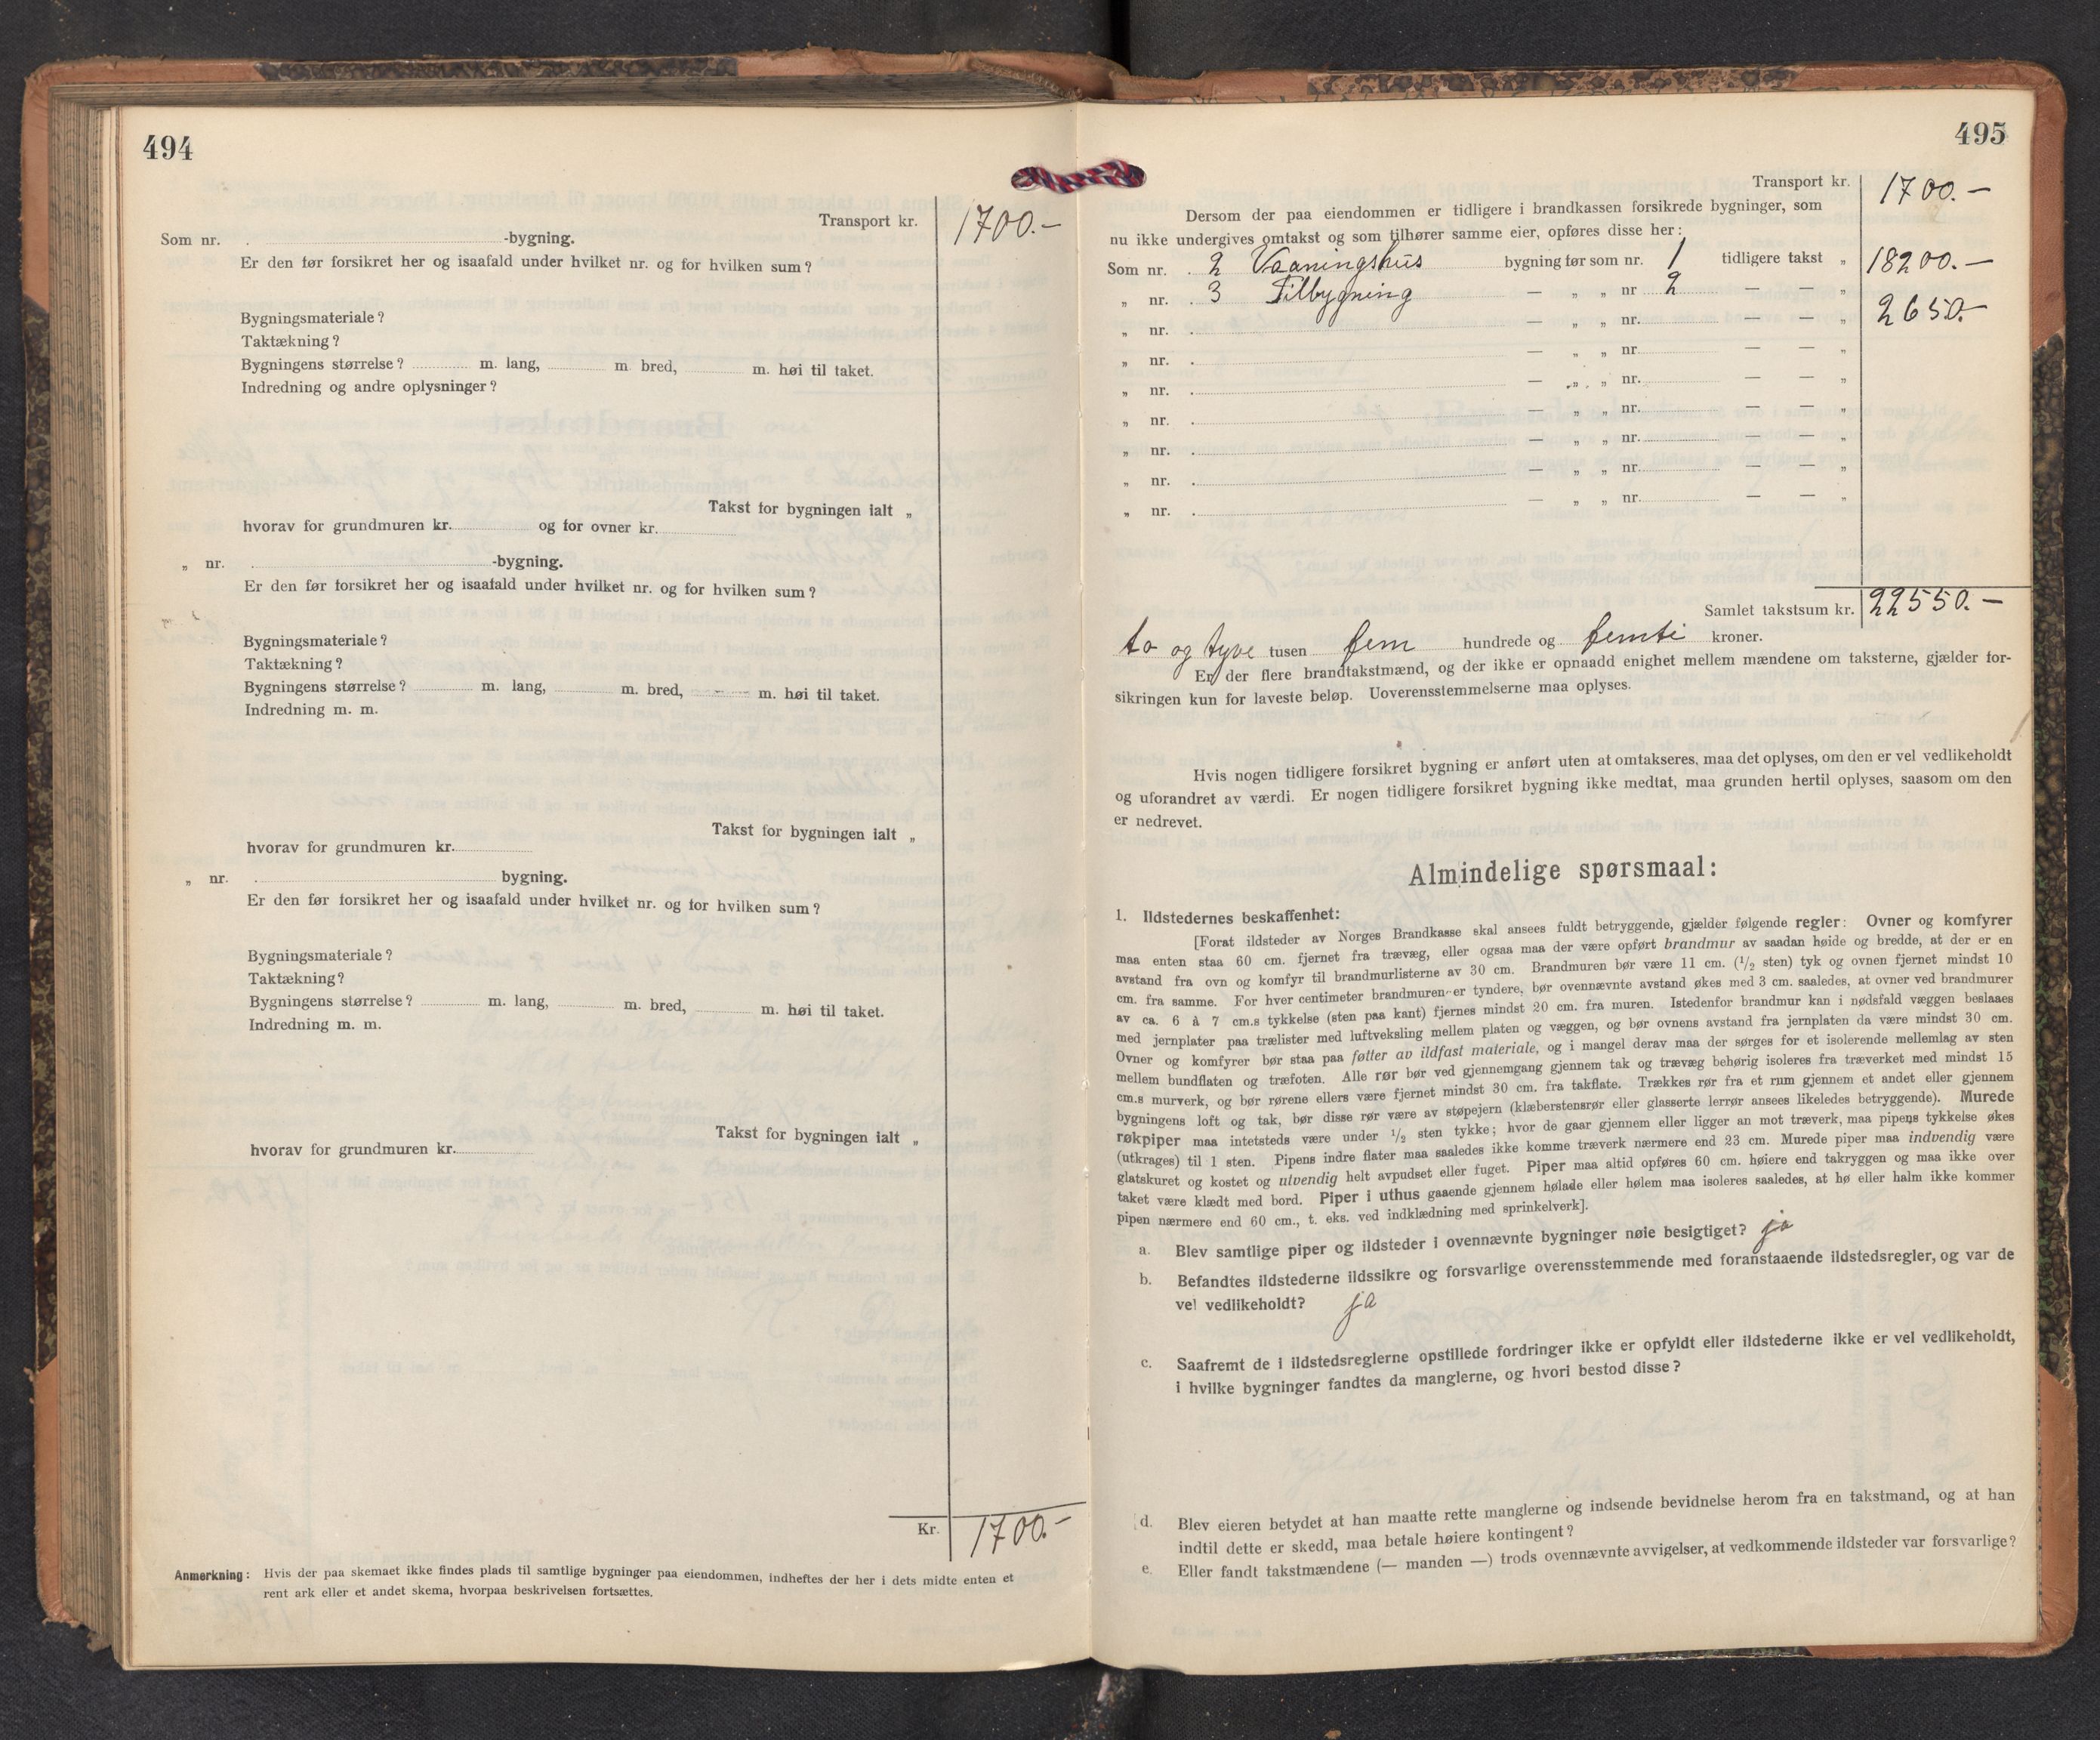 494
Transport kr. 1700.—
Som nr. -bygning.
Er den før forsikret her og isaafald under hvilket nr. og for hvilken sum?
Bygningsmateriale?
Taktækning?
Bygningens størrelse? m. lang, m bred, m. høi til taket.
Indredning og andre oplysninger?
Takst for bygningen ialt „
hvorav for grundmuren kr. og for ovner kr.
„ nr. -bygning.
Er den før forsikret her og isaafald under hvilket nr. og for hvilken sum?
Bygningsmateriale?
Taktækning?
Bygningens størrelse? m. lang, m. bred, m. høi til taket.
Indredning m. m.
Takst for bygningen ialt „
hvorav for grundmuren kr.
„ nr. bygning.
Er den før forsikret her og isaafald under hvilket nr. og for hvilken sum?
Bygningsmateriale?
Taktækning?
Bygningens størrelse? m. lang, m. bred, m. høi til taket.
Indredning m. m.
Takst for bygningen ialt „
hvorav for grundmuren kr.
Kr. 1700.—
Anmerkning: Hvis der paa skemaet ikke findes plads til samtlige bygninger paa eiendommen, indheftes der her i dets midte enten et
rent ark eller et andet skema, hvorpaa beskrivelsen fortsættes.
495
Transport kr. 1700.—
Dersom der paa eiendommen er tidligere i brandkassen forsikrede bygninger, som
nu ikke undergives omtakst og som tilhører samme eier, opføres disse her:
Som nr. 2 Vaaningshus bygning før som nr. 1 tidligere takst „ 18200.—
„ nr. 3 Tilbygning — „ „ nr 2 — — „ 2650.—
„ nr. . — „ „ nr. — — „
„ nr. . — „ „ nr. — — „
„ nr. . — „ „ nr. — — „
„ nr. . — „ „ nr. — — „
„ nr. . — „ „ nr. — — „
„ nr. . — „ „ nr. — — „
„ nr. . — „ „ nr. — — „
Samlet takstsum kr. 22550.—
to og tyve tusen fem hundrede og femti kroner.
Er der flere brandtakstmænd, og der ikke er opnaadd enighet mellem mændene om taksterne, gjælder for-
sikringen kun for laveste beløp. Uoverensstemmelserne maa oplyses.
Hvis nogen tidligere forsikret bygning er anført uten at omtakseres, maa det oplyses, om den er vel vedlikeholdt
og uforandret av værdi. Er nogen tidligere forsikret bygning ikke medtat, maa grunden hertil oplyses, saasom om den
er nedrevet.
Almindelige spørsmaal:
1. Ildstedernes beskaffenhet:
[Forat ildsteder av Norges Brandkasse skal ansees fuldt betryggende, gjælder følgende regler: Ovner og komfyrer
maa enten staa 60 cm. fjernet fra trævæg, eller ogsaa maa der være opført brandmur av saadan høide og bredde, at der er en
avstand fra ovn og komfyr til brandmurlisterne av 30 cm. Brandmuren bør være 11 cm. (1/2 sten) tyk og ovnen fjernet mindst 10
cm. fra samme. For hver centimeter brandmuren er tyndere, bør ovennævnte avstand økes med 3 cm. saaledes, at ovner ved brandmurer
av ca. 6 à 7 cm.s tykkelse (sten paa kant) fjernes mindst 20 cm. fra muren. Istedenfor brandmur kan i nødsfald væggen beslaaes
med jernplater paa trælister med luftveksling mellem platen og væggen, og bør ovnens avstand fra jernplaten da være mindst 30 cm.
Ovner og komfyrer bør staa paa føtter av ildfast materiale, og i mangel derav maa der sørges for et isolerende mellemlag av sten
mellem bundflaten og træfoten. Alle rør bør ved gjennemgang gjennem tak og trævæg behørig isoleres fra træverket med mindst 15
cm.s murverk, og bør rørene ellers være fjernet mindst 30 cm. fra takflate. Trækkes rør fra et rum gjennem et andet eller gjennem
bygningens loft og tak, bør disse rør være av støpejern (klæberstensrør eller glasserte lerrør ansees likeledes betryggende). Murede
røkpiper maa intetsteds være under 1/2 sten tykke; hvor de gaar gjennem eller ligger an mot træverk, maa pipens tykkelse økes
(utkrages) til 1 sten. Pipens indre flater maa saaledes ikke komme træverk nærmere end 23 cm. Murede piper maa indvendig være
glatskuret og kostet og utvendig helt avpudset eller fuget. Piper maa altid opføres 60 cm. høiere end takryggen og maa ikke over
taket være klædt med bord. Piper i uthus gaaende gjennem hølade eller hølem maa isoleres saaledes, at hø eller halm ikke kommer
pipen nærmere end 60 cm., t. eks. ved indklædning med sprinkelverk].
a. Blev samtlige piper og ildsteder i ovennævnte bygninger nøie besigtiget? ja
b. Befandtes ildstederne ildssikre og forsvarlige overensstemmende med foranstaaende ildstedsregler, og var de
vel vedlikeholdt? ja
c. Saafremt de i ildstedsreglerne opstillede fordringer ikke er opfyldt eller ildstederne ikke er vel vedlikeholdt,
i hvilke bygninger fandtes da manglerne, og hvori bestod disse?
d. Blev eieren betydet at han maatte rette manglerne og indsende bevidnelse herom fra en takstmand, og at han
indtil dette er skedd, maa betale høiere kontingent?
e. Eller fandt takstmændene (— manden —) trods ovennævnte avvigelser, at vedkommende ildsteder var forsvarlige?